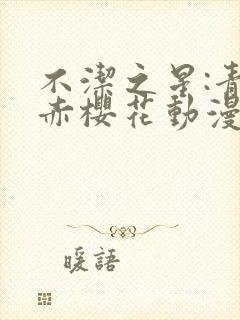 不潔之星:青
赤櫻花動漫
暖語